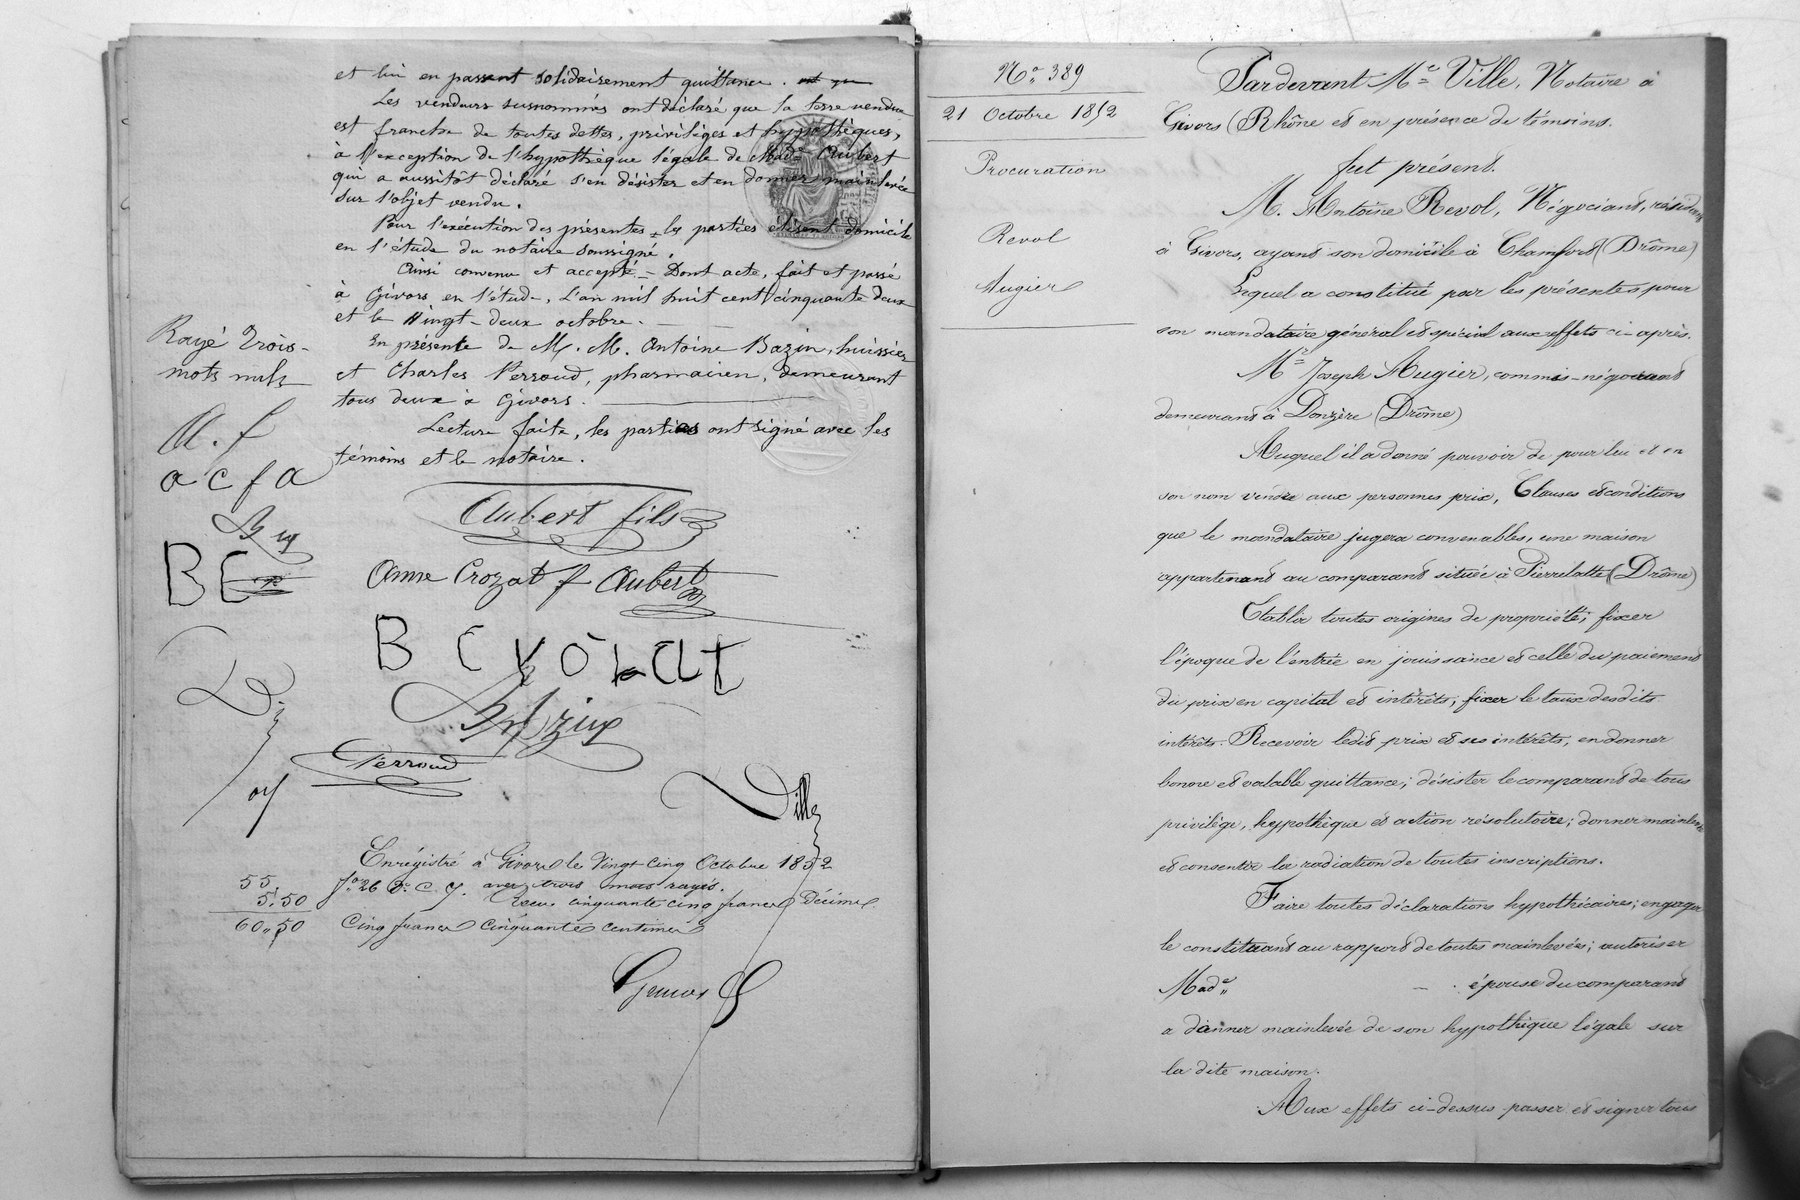 et lui en passent solidairement quittance.
Les vendeurs susnommés ont déclaré que la terre vendue
est franche de toutes dettes, privilèges et hypothèques,
à l'exception de l'hypothèque légale de Made Aubert
qui a aussitôt déclaré s'en désister et en donner mainlevée
sur l'objet vendu.
Pour l'exécution des présentes les parties élisent domicile
en l'étude du notaire soussigné.
Ainsi convenu et accepté. — Dont acte, fait et passé
à Givors en l'étude, L'an mil huit cent cinquante deux
et le Vingt-deux octobre.
En présence de M. M. Antoine Bazin, huissier
et Charles Perroud, pharmacien, demeurant
tous deux à Givors.
Lecture faite, les parties ont signé avec les
témoins et le notaire.
Rayé trois
mots nuls
A. f
a c f a
B C
Aubert fils
Anne Crozat f Aubert
B C
Bazin
Perroud
Ville
Enregistré à Givors le Vingt cinq Octobre 1852
fo 26 Vo C. 7. avec trois mots rayés.
Reçu cinquante cinq francs Décime
Cinq francs cinquante centimes
55
5.50
60.50
No 389
21 Octobre 1852
Procuration
Revol
Augier
Pardevant Me Ville, Notaire à
Givors (Rhône et en présence de témoins.
fut présent.
M. Antoine Revol, Négociant, résidant
à Givors, ayant son domicile à (Drôme)
Lequel a constitué par les présentes pour
son mandataire général et spécial aux effets ci-après.
Mr Joseph Augier, commis-négociant
demeurant à Donzère (Drôme)
Auquel il a donné pouvoir de pour lui et en
son nom vendre aux personnes prix, Clauses et conditions
que le mandataire jugera convenables, une maison
appartenant au comparant située à Pierrelatte (Drôme)
Etablir toutes origines de propriété; fixer
l'époque de l'entrée en jouissance et celle du paiement
du prix en capital et intérêts; fixer le taux desdits
intérêts. Recevoir ledit prix et ses intérêts, en donner
bonne et valable quittance; désister le comparant de tous
privilège, hypothèque et action résolutoire; donner mainlevée
et consentir la radiation de toutes inscriptions.
Faire toutes déclarations hypothécaires; engager
le constituant au rapport de toutes mainlevées; autoriser
Made épouse du comparant
a donner mainlevée de son hypothèque légale sur
la dite maison.
Aux effets ci-dessus passer et signer tous